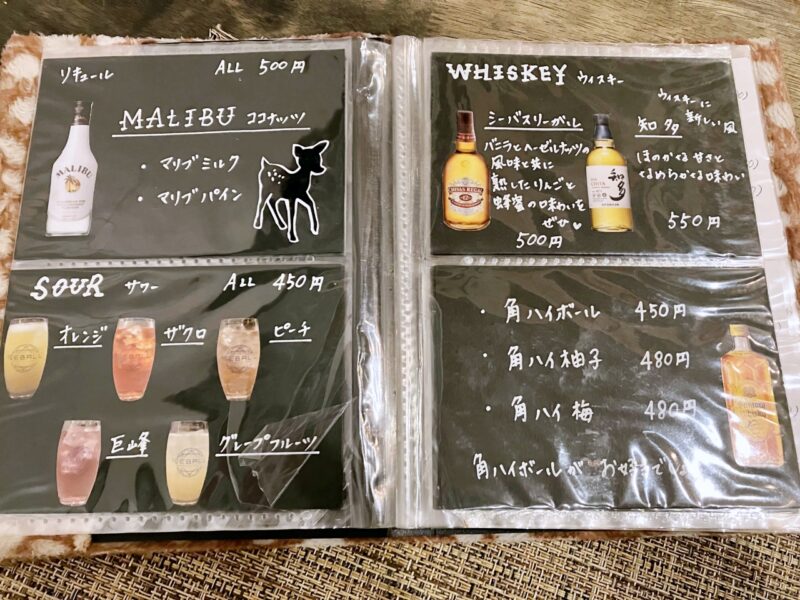 リキュール ALL 500円
MALIBU ココナッツ
・マリブミルク
・マリブパイン
MALIBU
SOUR サワー ALL 450円
オレンジ
ザクロ
ピーチ
巨峰
グレープフルーツ
WHISKEY ウィスキー
シーバスリーガル
バニラとヘーゼルナッツの
風味と共に
熟したりんごと
蜂蜜の味わいを
ぜひ♥
500円
CHIVAS REGAL
ウィスキーに
新しい風
知多
ほのかな甘さと
なめらかな味わい
550円
知多
・角ハイボール 450円
・角ハイ柚子 480円
・角ハイ梅 480円
角ハイボールが お好きでしょ